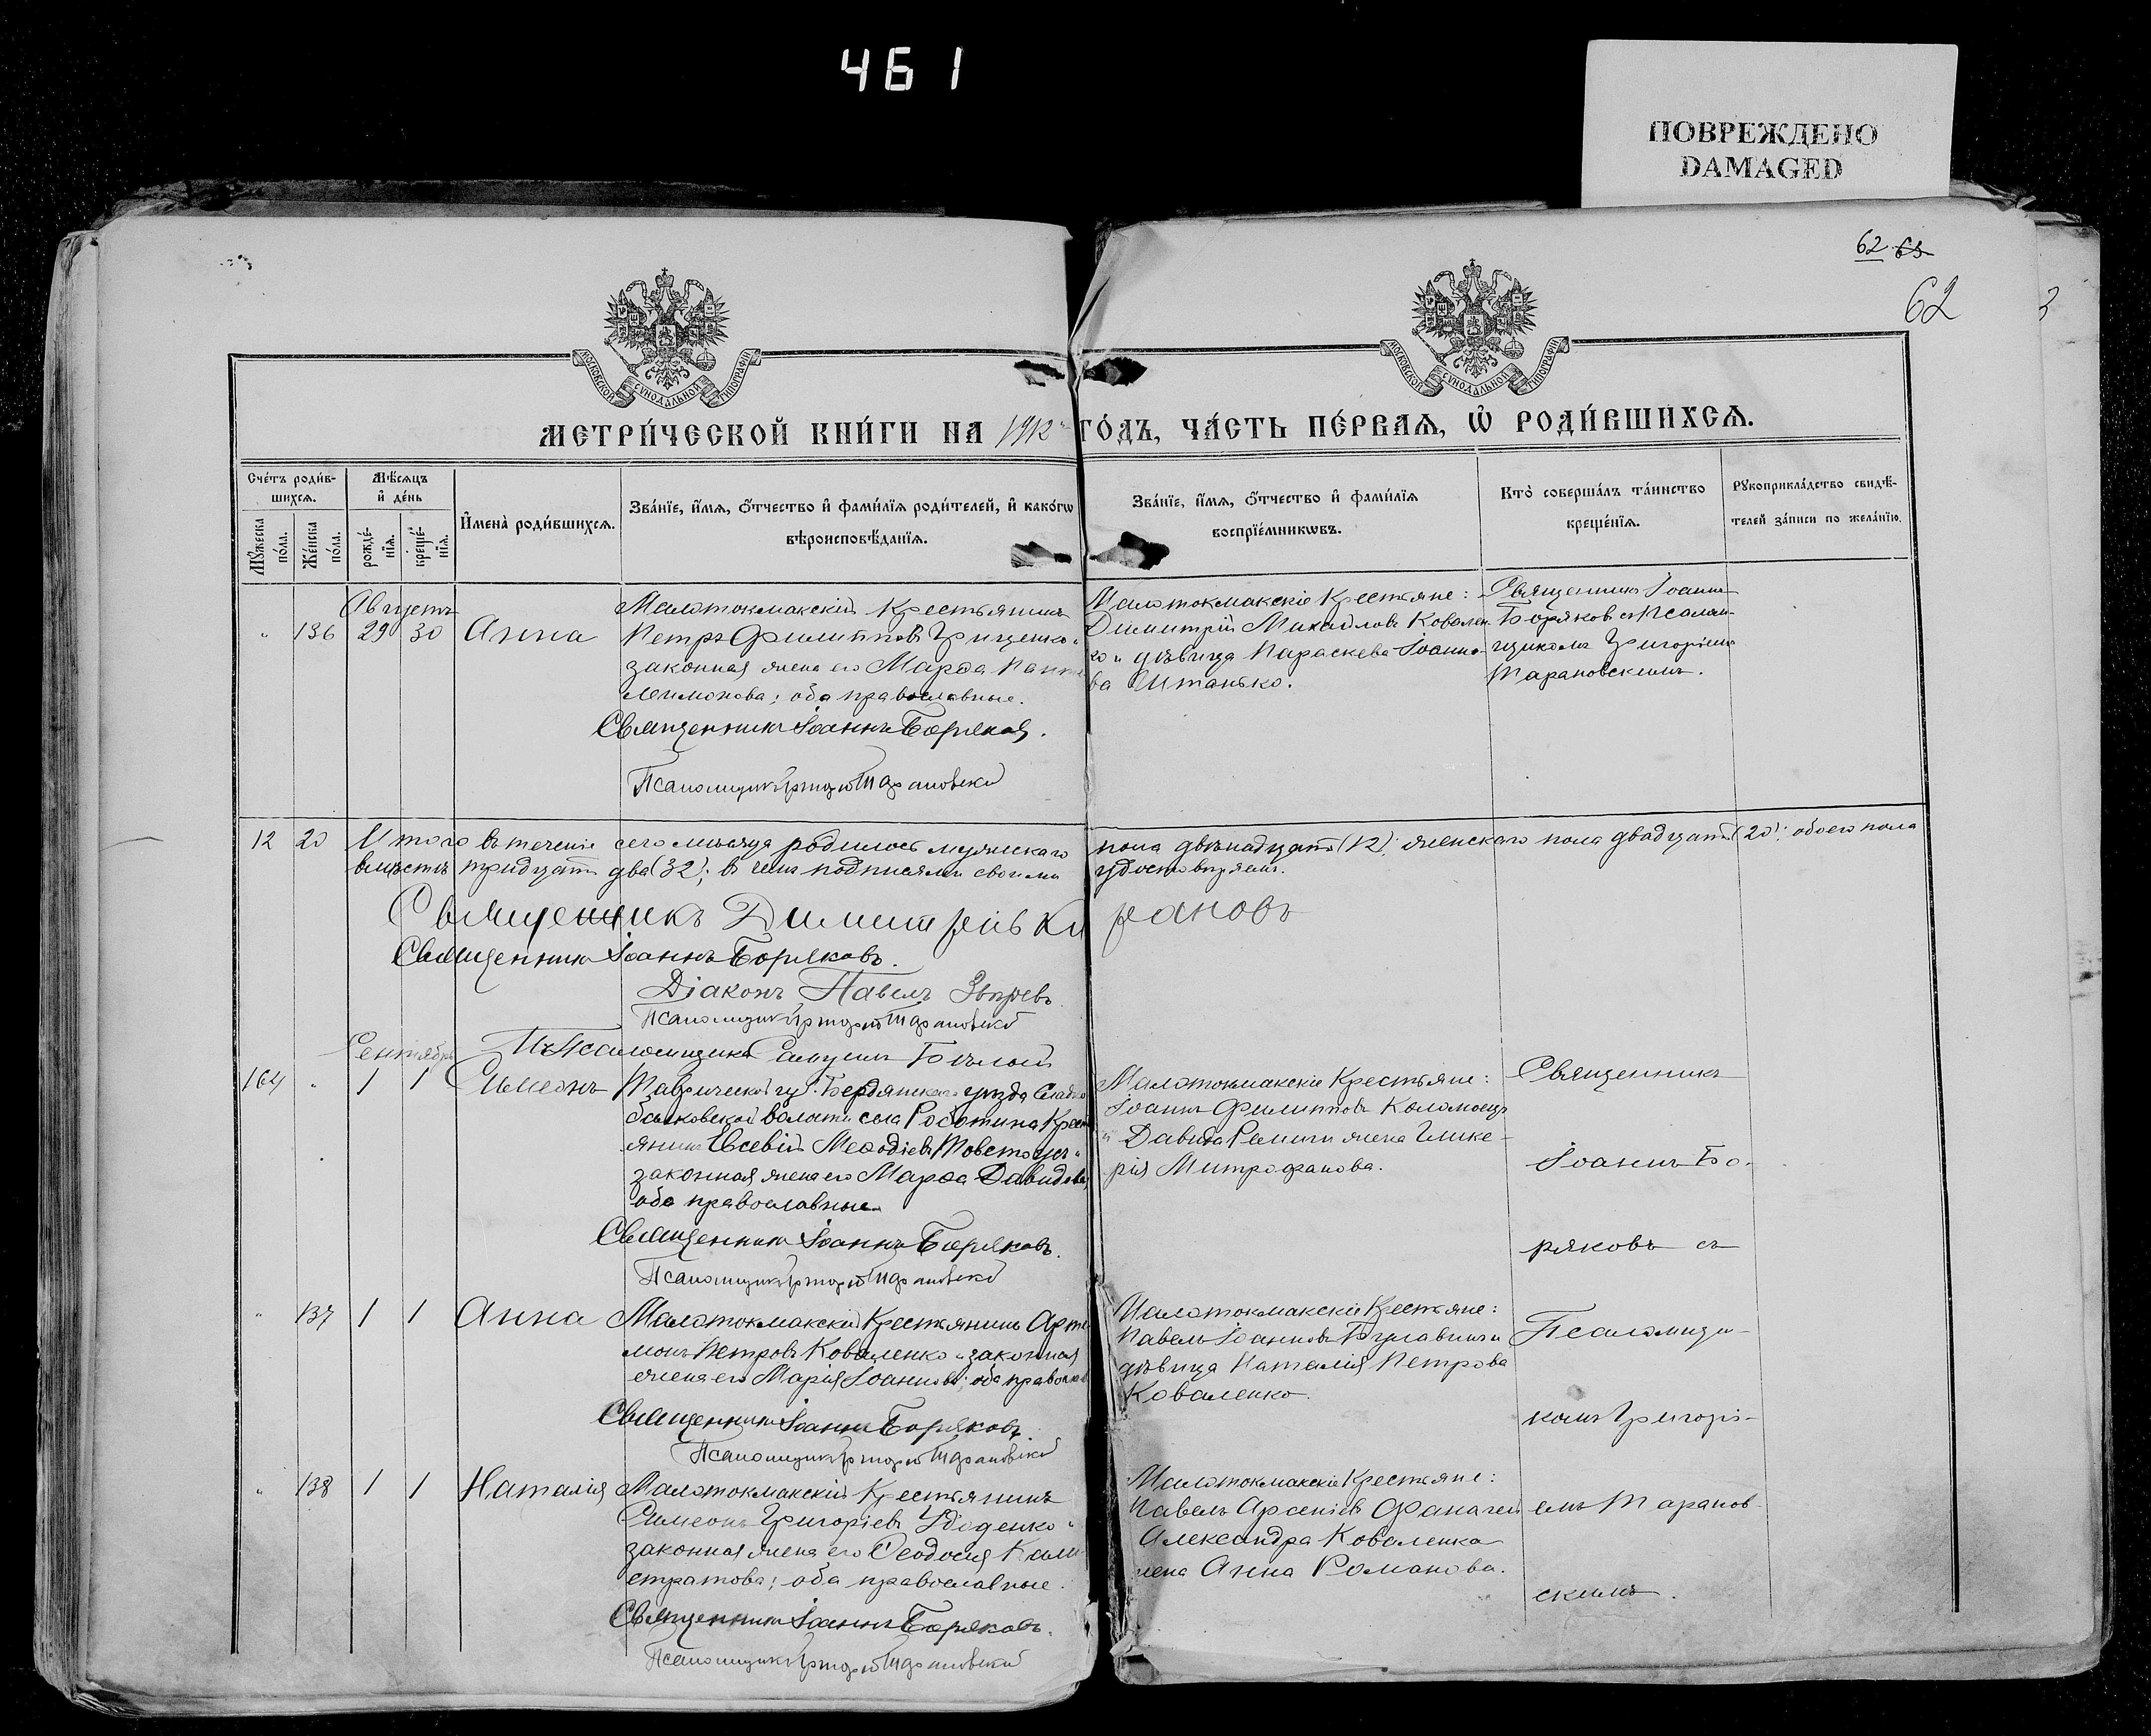 461
ПОВРЕЖДЕНО
DAMAGED
62 63
62
МОСКОВСКОЙ СѴНОДАЛЬНОЙ ТИПОГРАФІИ
МОСКОВСКОЙ СѴНОДАЛЬНОЙ ТИПОГРАФІИ
МЕТРИ́ЧЕСКОЙ КНИ́ГИ НА 1912 ГО́ДЪ, ЧА́СТЬ ПЕ́РВАѦ, Ѡ҆ РОДИ́ВШИХСѦ.
Сче́тъ роди́в-
шихсѧ.
Мꙋ́жеска
по́ла.
Же́нска
по́ла.
Мѣ́сѧцъ
и҆ де́нь
рожде́-
нїѧ.
креще́-
нїѧ.
И҆мена̀ роди́вшихсѧ.
Зва́нїе, и҆́мѧ, ѻ҆́тчество и҆ фами́лїѧ роди́телей, и҆ како́гѡ
вѣроисповѣ́данїѧ.
Зва́нїе, и҆́мѧ, ѻ҆́тчество и҆ фами́лїѧ
воспрїе́мникѡвъ.
Кто̀ соверша́лъ та́инство
креще́нїѧ.
Рꙋкоприкла́дство свидѣ́-
телей за́писи по жела́нїю.
Августъ
" 136 29 30 Анна
Малотокмакскій Крестьянинъ
Петръ Филипповъ Грищенко и
законная жена его Марѳа Панте
леимонова; оба православные.
Священникъ Іоаннъ Боряковъ.
Псаломщикъ Григорій Тарановскій
Малотокмакскіе Крестьяне:
Димитрій Михайловъ Ковален
ко и дѣвица Параскева Іоанно-
ва Штанько.
Священникъ Іоаннъ
Боряков съ Псалом-
щикомъ Григоріемъ
Тарановскимъ.
12 20 Итого въ теченіе сего мѣсяца родилось мужескаго пола двѣнадцать (12); женскаго пола двадцать (20); обоего пола
вмѣстѣ тридцать два (32); въ чемъ подписями своими удостовѣряемъ.
Священникъ Димитрій Ки рановъ
Священникъ Іоаннъ Боряковъ.
Діаконъ Павелъ Звѣревъ
Псаломщикъ Григорій Тарановскій
Псаломщикъ Бѣлый
Сентябрь
164 " 1 1 Сѵмеонъ
Таврической губ. Бердянскаго уѣзда
волости села Работина Крест
янинъ Евсевій Меѳодіевъ и
законная жена его Марѳа Давидова
оба православные.
Священникъ Іоаннъ Боряковъ.
Псаломщикъ Григорій Тарановскій
Малотокмакскіе Крестьяне:
Іоаннъ Филипповъ Коломоецъ
и Давида жена Глике-
рія Митрофанова.
Священникъ
Іоаннъ Бо-
ряковъ съ
" 137 1 1 Анна
Малотокмакскій Крестьянинъ Арте
монъ Петровъ Коваленко и законная
жена его Марія Іоаннова; оба правосла
Священникъ Іоаннъ Боряковъ.
Псаломщикъ Григорій Тарановскій
Малотокмакскіе Крестьяне:
Павелъ Іоанновъ и
дѣвица Наталія Петрова
Коваленко.
Псаломщи-
комъ Григорі-
" 138 1 1 Наталія
Малотокмакскій Крестьянинъ
Симеонъ Григоріевъ Удоденко и
законная жена его Ѳеодосія Кали
стратова; оба православные.
Священникъ Іоаннъ Боряковъ.
Псаломщикъ Григорій Тарановскій
Малотокмакскіе Крестьяне:
Павелъ Арсеніевъ
Александра Коваленка
жена Анна Романова.
емъ Таранов-
скимъ.